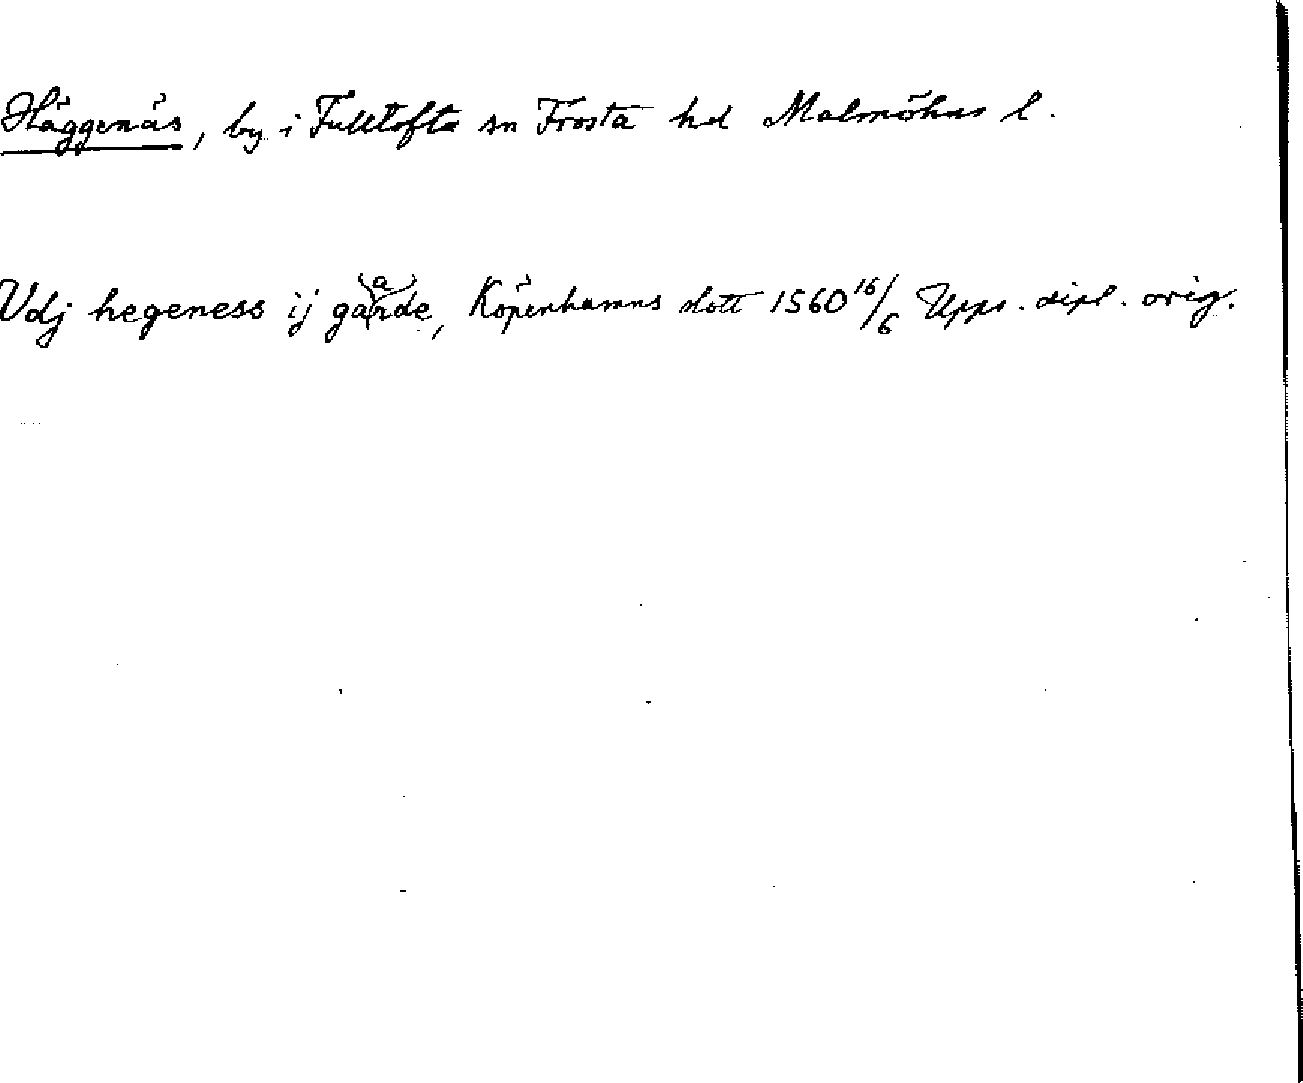 Häggenäs, by i Fulltofta sn Frosta hd Malmöhus l.
Udj hegeness ij gaarde, Köpenhamns slott 1560 16/6 Upps. dipl. orig.